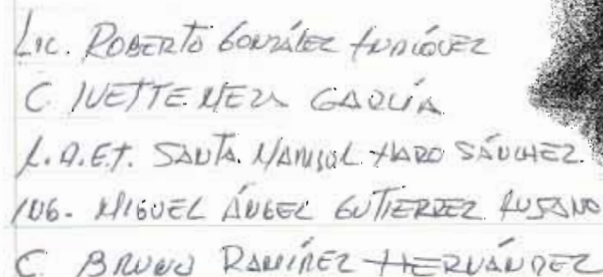 Lic. ROBERTO GONZÁLEZ
C. IVETTE MEZA GARCÍA
L.A.E.T. SANTA MARISOL HARO SÁNCHEZ.
ING. MIGUEL ÁNGEL GUTIERREZ
C. BRUNO RAMÍREZ HERNÁNDEZ